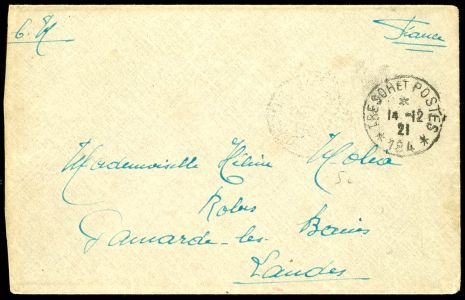 France
TRESOR ET POSTES
*
14-12
21
* 194 *
Mademoiselle Hélène
Gamarde-les-Bains
Landes